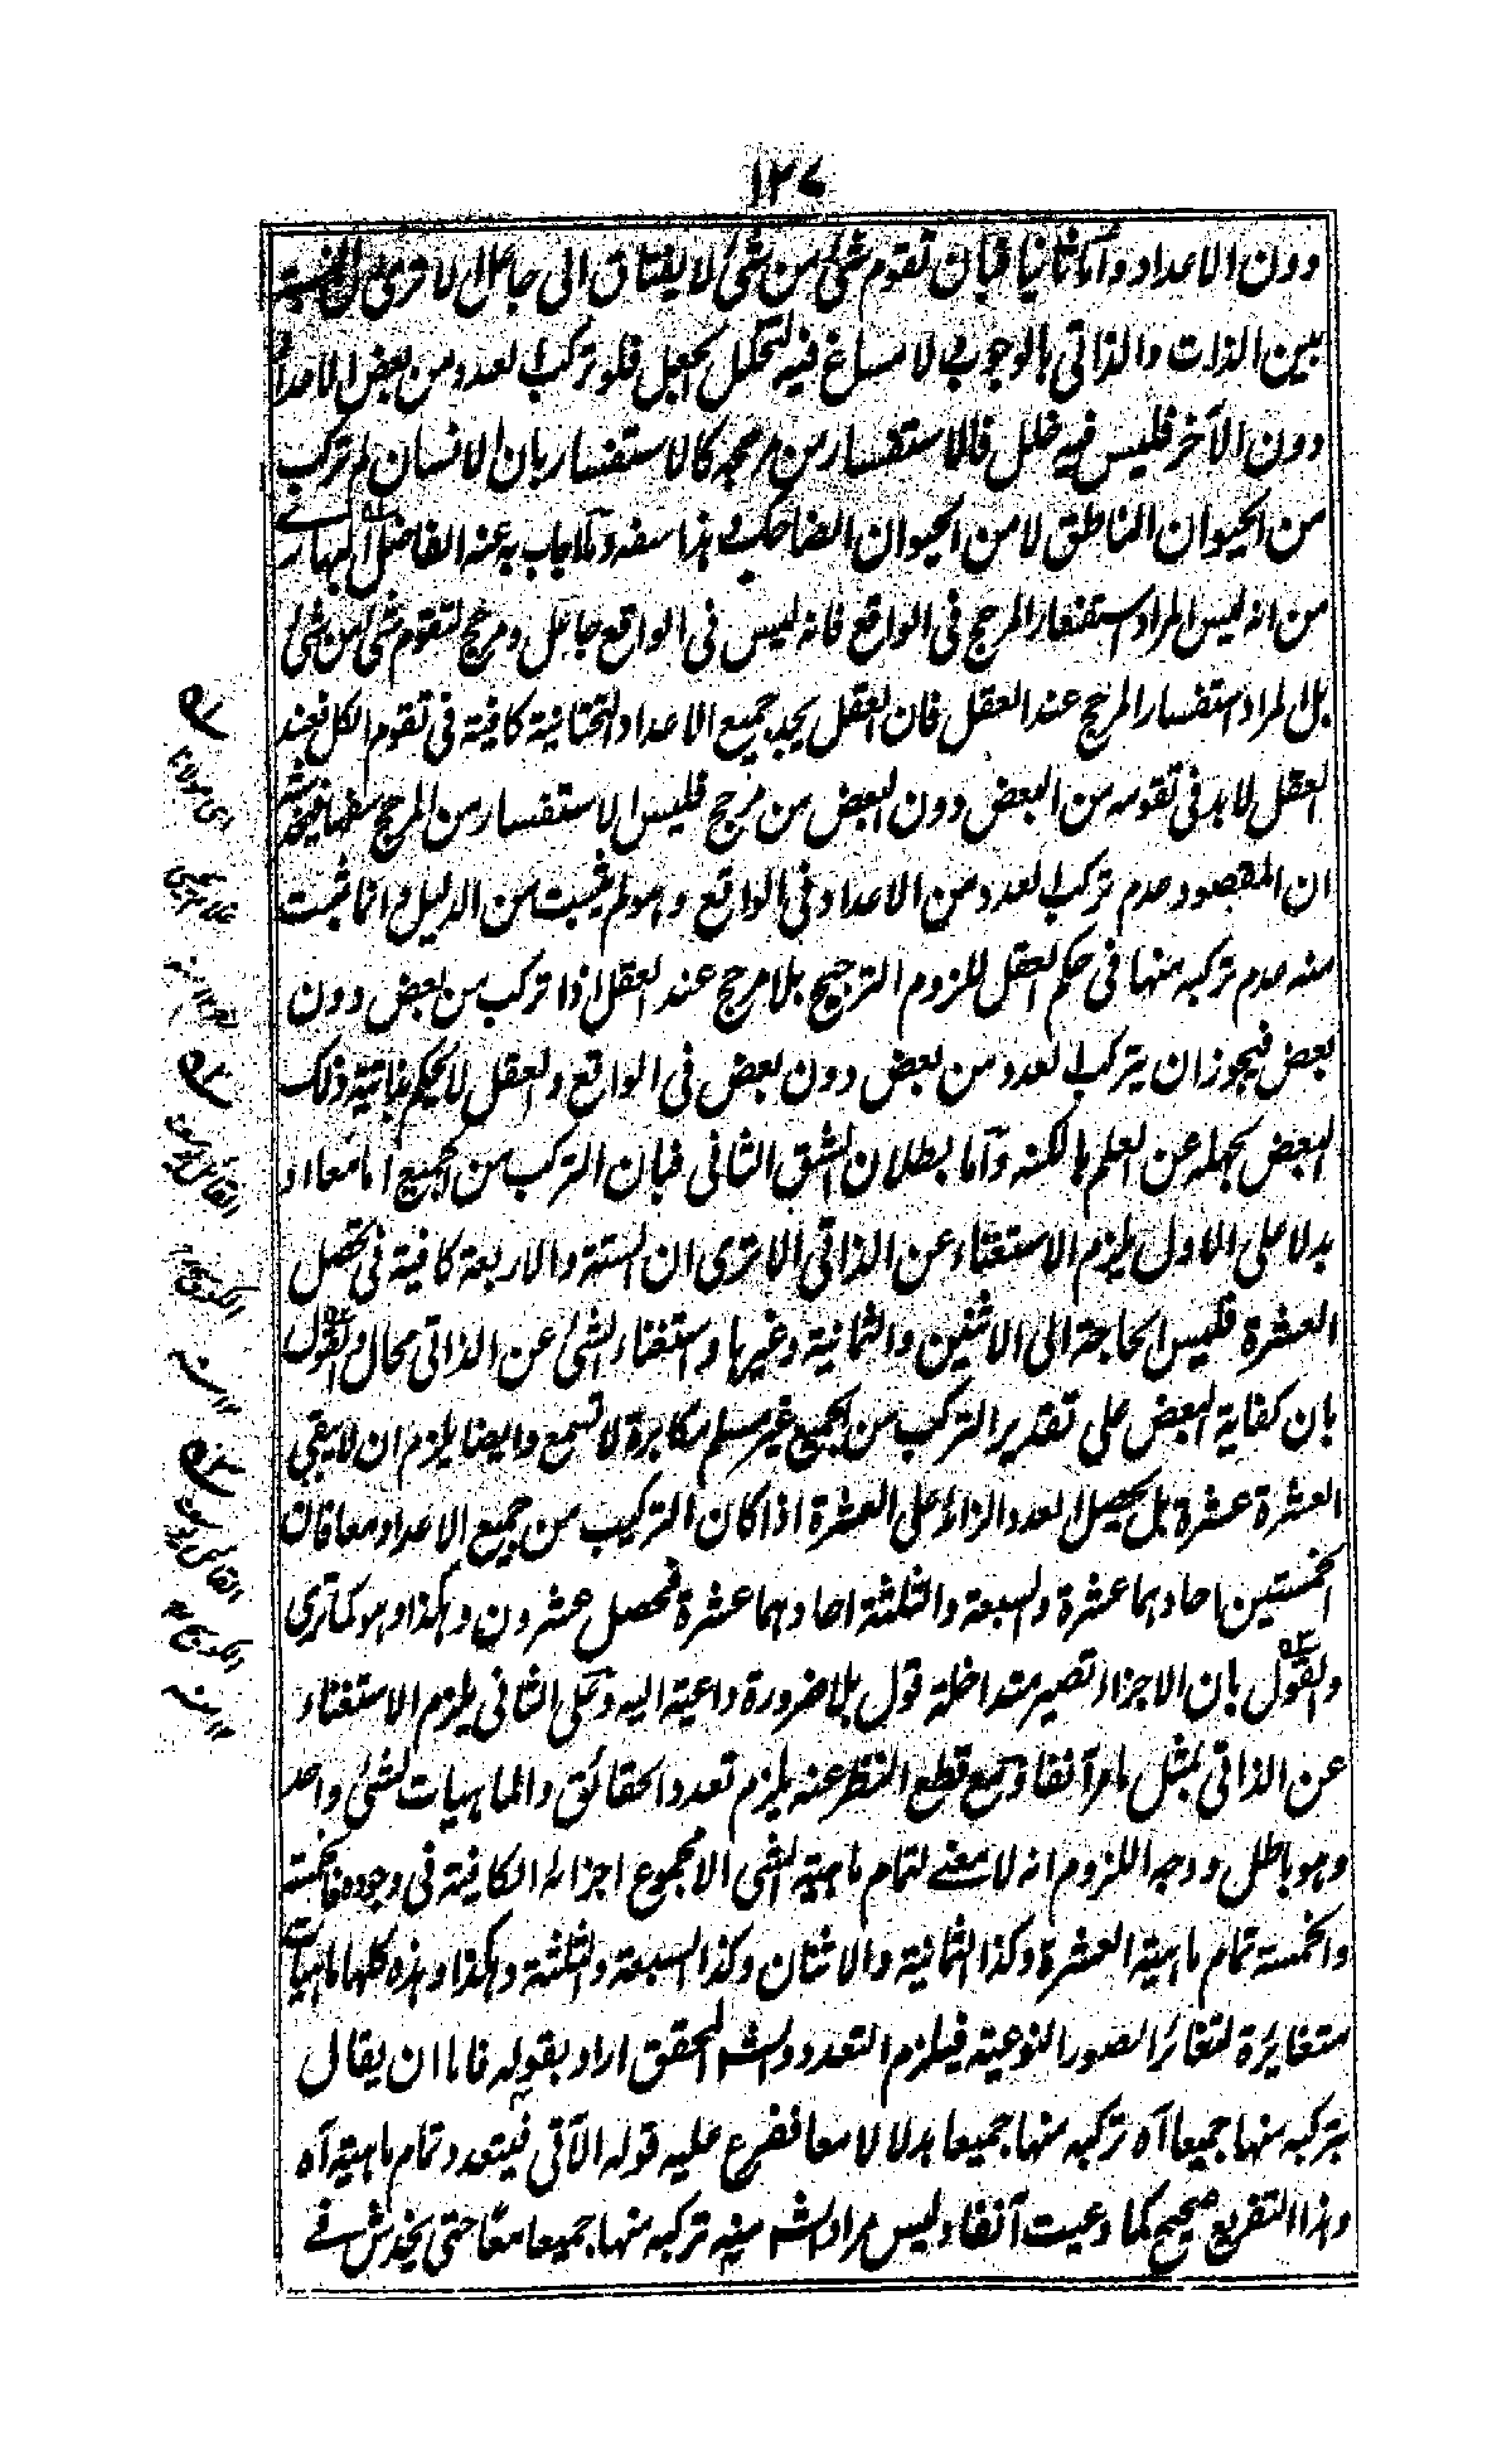 ١٢٧
دون الاعداد وأما ثانيا فبان تقوم شئ من شئ لا يفتاق الى جاعل لا فرى ان النسبة
بين الذات والذاتى بالوجوب لا مساغ فيه لتخلل الجعل فلو تركب العدد من بعض الاعداد
دون الآخر فليس فيه خلل فالاستفسار من مرجحه كالاستفسار بان الانسان لم تركب
من الحيوان الناطق لا من الحيوان الضاحك وهذا سفه وما اجاب به عنه الفاضل البهارى
من انه ليس المراد استفسار المرجح فى الواقع فانه ليس فى الواقع جاعل ومرجح لتقوم شئ من شئ
بل المراد استفسار المرجح عند العقل فان العقل يجد جميع الاعداد التحتانية كافية فى تقوم الكل فعند
العقل لا بد فى تقومه من البعض دون البعض من مرجح فليس الاستفسار من المرجح سفها فيخدشه
ان المقصود عدم تركب العدد من الاعداد فى الواقع وهو لم يثبت من الدليل وانما ثبت
منه عدم تركبه منها فى حكم العقل للزوم الترجيح بلا مرجح عند العقل اذا تركب من بعض دون
بعض فيجوز ان يتركب العدد من بعض دون بعض فى الواقع والعقل لا يحكم بذاتية ذلك
البعض لجهله عن العلم بالكنه وأما بطلان الشق الثانى فبان التركب من الجميع اما معا او
بدلا على الاول يلزم الاستغناء عن الذاتى الا ترى ان الستة والاربعة كافية فى تحصل
العشرة فليس الحاجة الى الاثنين والثمانية وغيرها واستغناء الشئ عن الذاتى محال والقول
بان كفاية البعض على تقدير التركب من الجميع غير مسلم مكابرة لا تسمع وايضا يلزم ان لا يبقى
العشرة عشرة بل يحصل العدد الزائد على العشرة اذا كان التركيب من جميع الاعداد معا فان
الخمستين احادهما عشرة والسبعة والثلثة احادهما عشرة فحصل عشرون وهكذا وهو كما ترى
والقول بان الاجزاء تصير متداخلة قول بلا ضرورة داعية اليه وعلى الثانى يلزم الاستغناء
عن الذاتى بمثل ما مر آنفا ومع قطع النظر عنه يلزم تعدد الحقائق والماهيات لشئ واحد
وهو باطل ووجه اللزوم انه لا معنے لتمام ماهية الشئ الا مجموع اجزائه الكافية فى وجوده فالخمسة
والخمسة تمام ماهية العشرة وكذا الثمانية والاثنان وكذا السبعة والثلثة وهكذا وهذه كلها ماهيات
متغايرة لتغائر الصور النوعية فيلزم التعدد والشه المحقق اراد بقوله فاما ان يقال
بتركبه منها جميعا آه تركبه منها جميعا بدلا لا معا ففرع عليه قوله الآتى فيتعدد تمام ماهية آه
وهذا التفريع صحيح كما دعيت آنفا وليس مراد الشه منه تركبه منها جميعا معا حتى يخدش فے